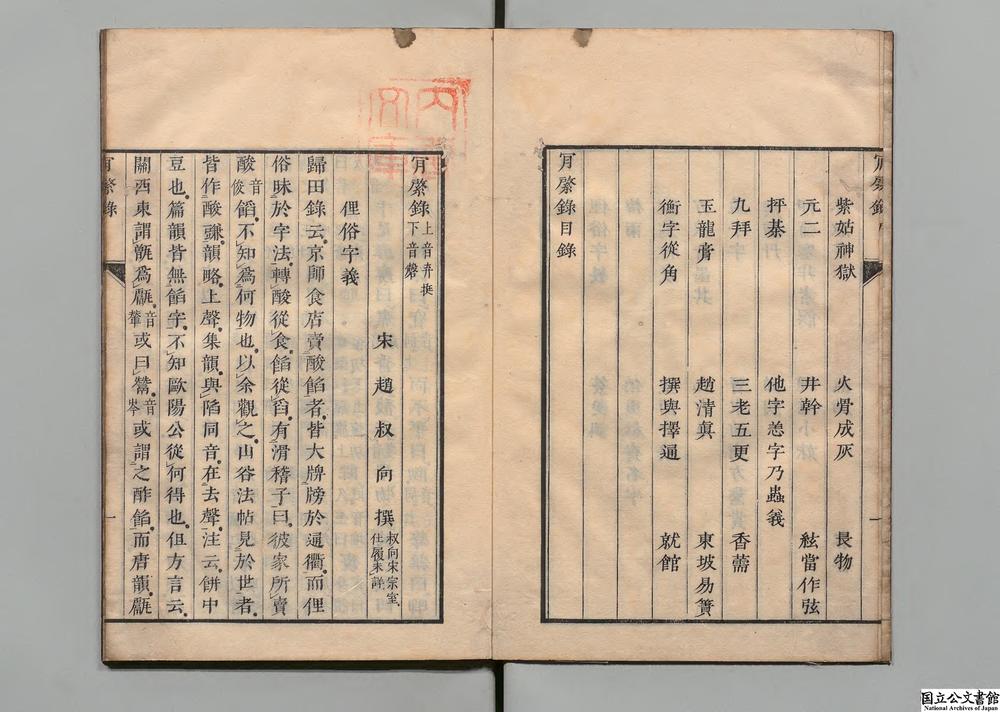 紫姑神獄 火骨成灰 長物
元二 井幹 絃當作弦
抨棊 他字恙字乃蟲義
九拜 三老五更 香薷
玉龍膏 趙清眞 東坡易簀
衡字從角 撰與擇通 就館
肎綮錄目錄
一
肎綮錄 上音弆挨 下音磬 宋 趙 叔 向 撰 叔向宋宗室 仕履未詳
俚俗字義
歸田錄云京師食店賣酸餡者皆大牌牓於通衢而俚
俗昧於字法轉酸從食餡從舀有滑稽子曰彼家所賣
酸 音俊 餡不知爲何物也以余觀之山谷法帖見於世者
皆作酸豏韻略上聲集韻與陷同音在去聲注云餠中
豆也篇韻皆無餡字不知歐陽公從何得也但方言云
關西東謂甑爲甗 音輦 或曰鬵 音岑 或謂之酢餾而唐韻甗
肎綮錄
一
国立公文書館
National Archives of Japan